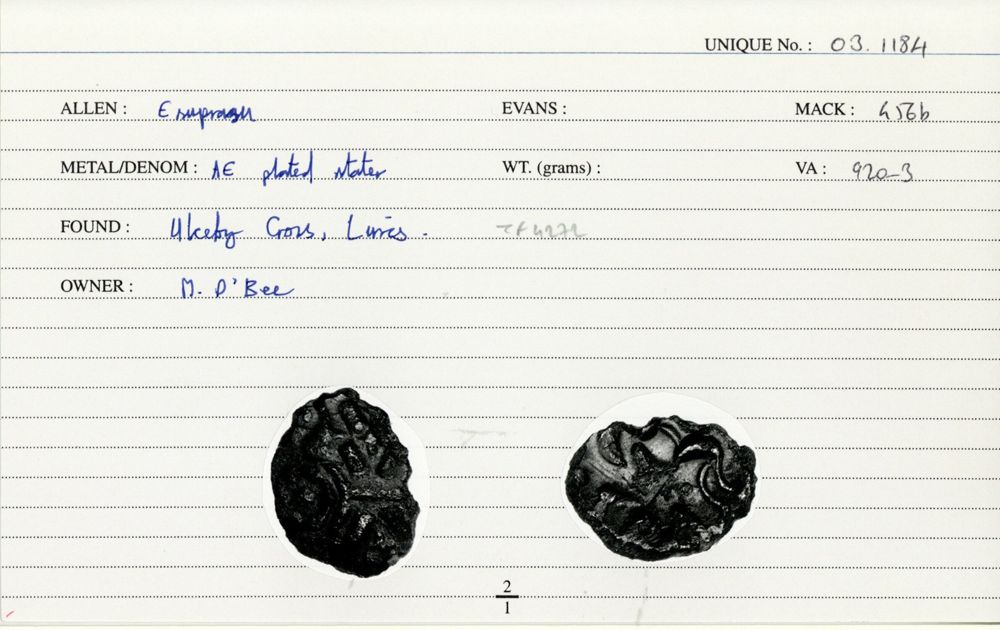 UNIQUE No. : 03. 1184
ALLEN : Esuprasu EVANS : MACK : 456b
METAL/DENOM : AE plated stater WT. (grams) : VA : 920-3
FOUND : Ulceby Cross, Lincs. TF 4272
OWNER : M. O'Bee
2
1